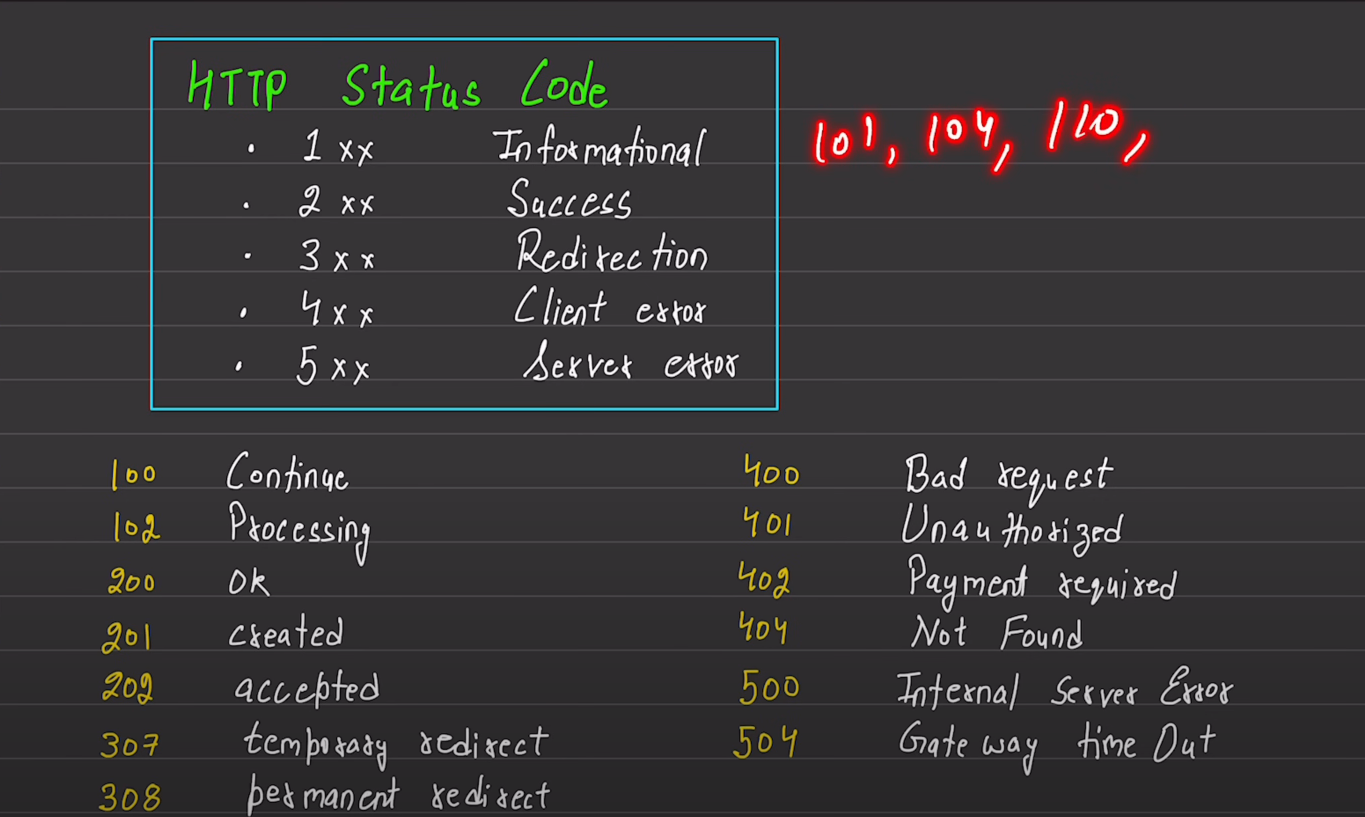 HTTP Status Code
• 1xx Informational
101, 104, 110,
• 2xx Success
• 3xx Redirection
• 4xx Client error
• 5xx Server error
100 Continue
102 Processing
200 Ok
201 created
202 accepted
307 temporary redirect
308 permanent redirect
400 Bad request
401 Unauthorized
402 Payment required
404 Not Found
500 Internal Server Error
504 Gateway time Out